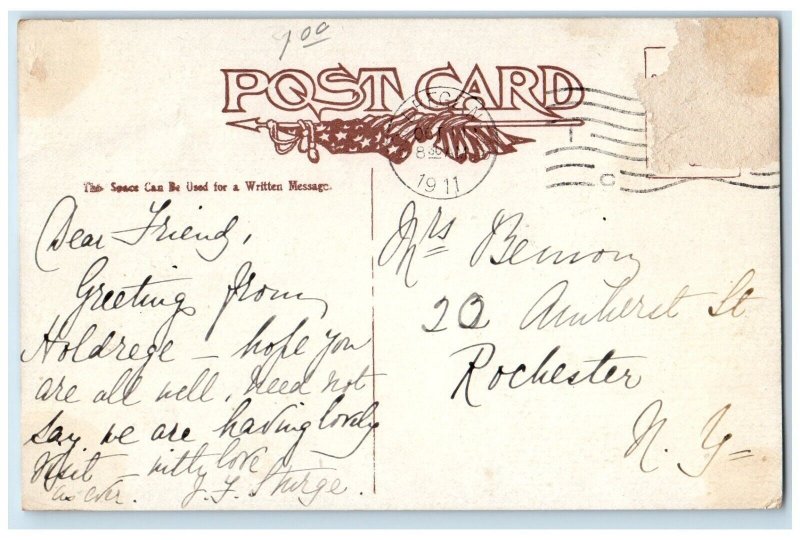 1 00
POST CARD
OCT
8 30
1911
This Space Can Be Used for a Written Message.
Dear Friend,
Greeting from
Holdrege – hope you
are all well, need not
say, we are having lovely
visit – with love –
as ever. J. F. Sturge.
Mrs Benion
20 Amherst St
Rochester
N. Y –